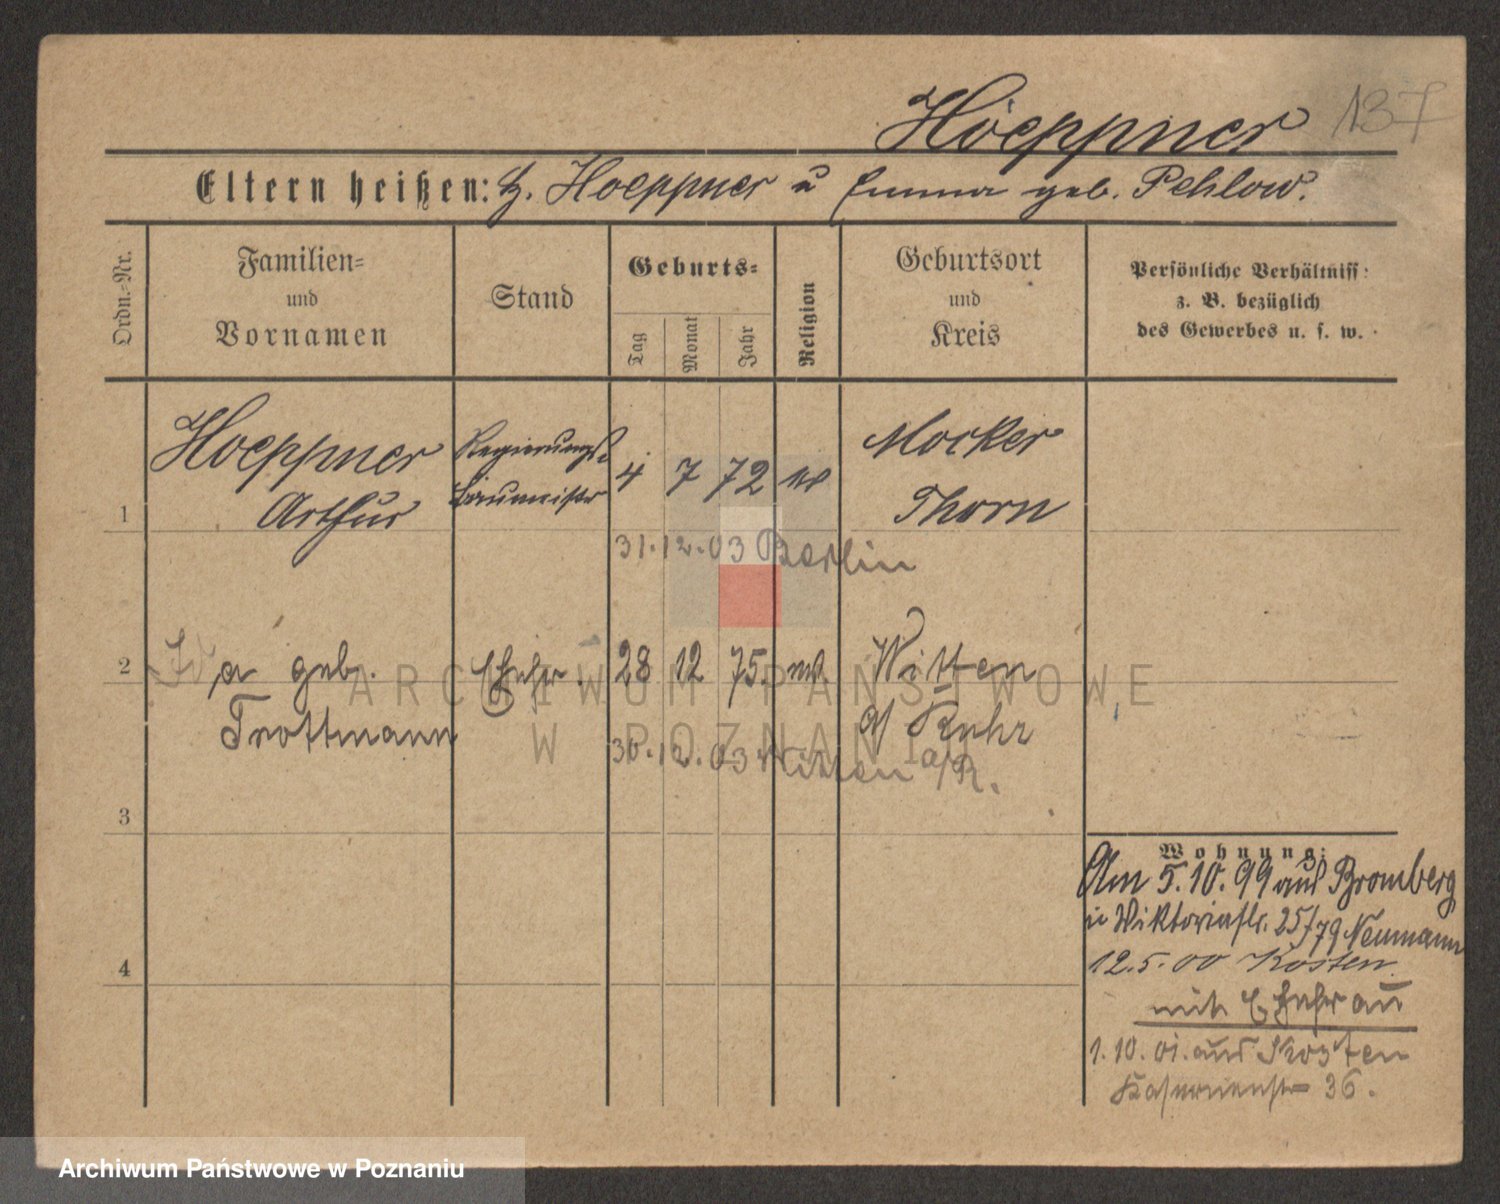 Hoeppner 137
Eltern heißen: H. Hoeppner u Emma geb. Pehlow.
Ordn.-Nr.
Familien-
und
Vornamen
Stand
Geburts-
Tag
Monat
Jahr
Religion
Geburtsort
und
Kreis
Persönliche Verhältniss:
z. B. bezüglich
des Gewerbes u. s. w.
Hoeppner Regierungs- 4 7 72 Mocker
1 Arthur Baumeister Thorn
31.12.03 Berlin
2 geb. Ehefr. 28 12 75. Witten
Trottmann a/ Ruhr
30.12.03 Witten a/R.
3
4
Wohnung:
Am 5.10.99 aus Bromberg
in Wiktoriastr. 25/79 Neumann
12.5.00 Kosten
mit Ehefr an
1.10.01. aus Kosten
Kasernenstr 36.
ARCHIWUM PAŃSTWOWE
W POZNANIU
Archiwum Państwowe w Poznaniu